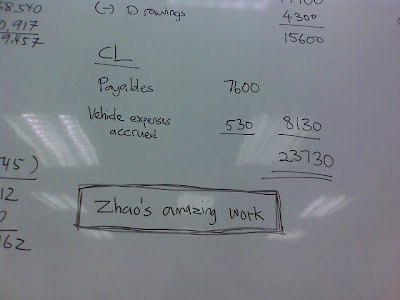 8,540
(-) Drawings
0,917
4300
9,457
15600
CL
Payables 7600
Vehicle expenses
accrued 530 8130
23730
45)
12
0
162
Zhao's amazing work